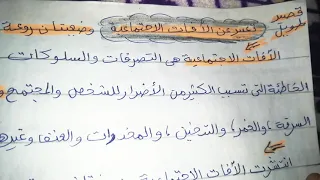 قصير
طويل
تعبير عن الآفات الاجتماعية وضعيتان روعة
الآفات الاجتماعية هي التصرفات والسلوكات
الخاطئة التي تسبب الكثير من الأضرار للشخص والمجتمع
السرقة، والخمر، والتدخين، والمخدرات والعنف وغيرها
انتشرت الآفات الاجتماعية